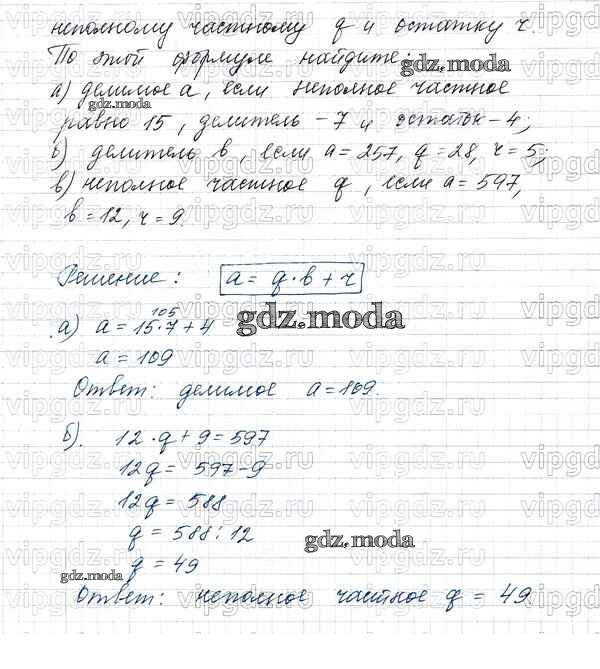 неполному частному q и остатку r.
По этой формуле найдите:
а) делимое a, если неполное частное
равно 15, делитель - 7 и остаток - 4;
б) делитель b, если a = 257, q = 28, r = 5;
в) неполное частное q, если a = 597,
b = 12, r = 9.
Решение: a = q · b + r
105
а) a = 15 · 7 + 4
a = 109
Ответ: делимое a = 109.
б). 12 · q + 9 = 597
12q = 597 - 9
12q = 588
q = 588 : 12
q = 49
Ответ: неполное частное q = 49
gdz.moda
gdz.moda
gdz.moda
gdz.moda
gdz.moda
vipgdz.ru